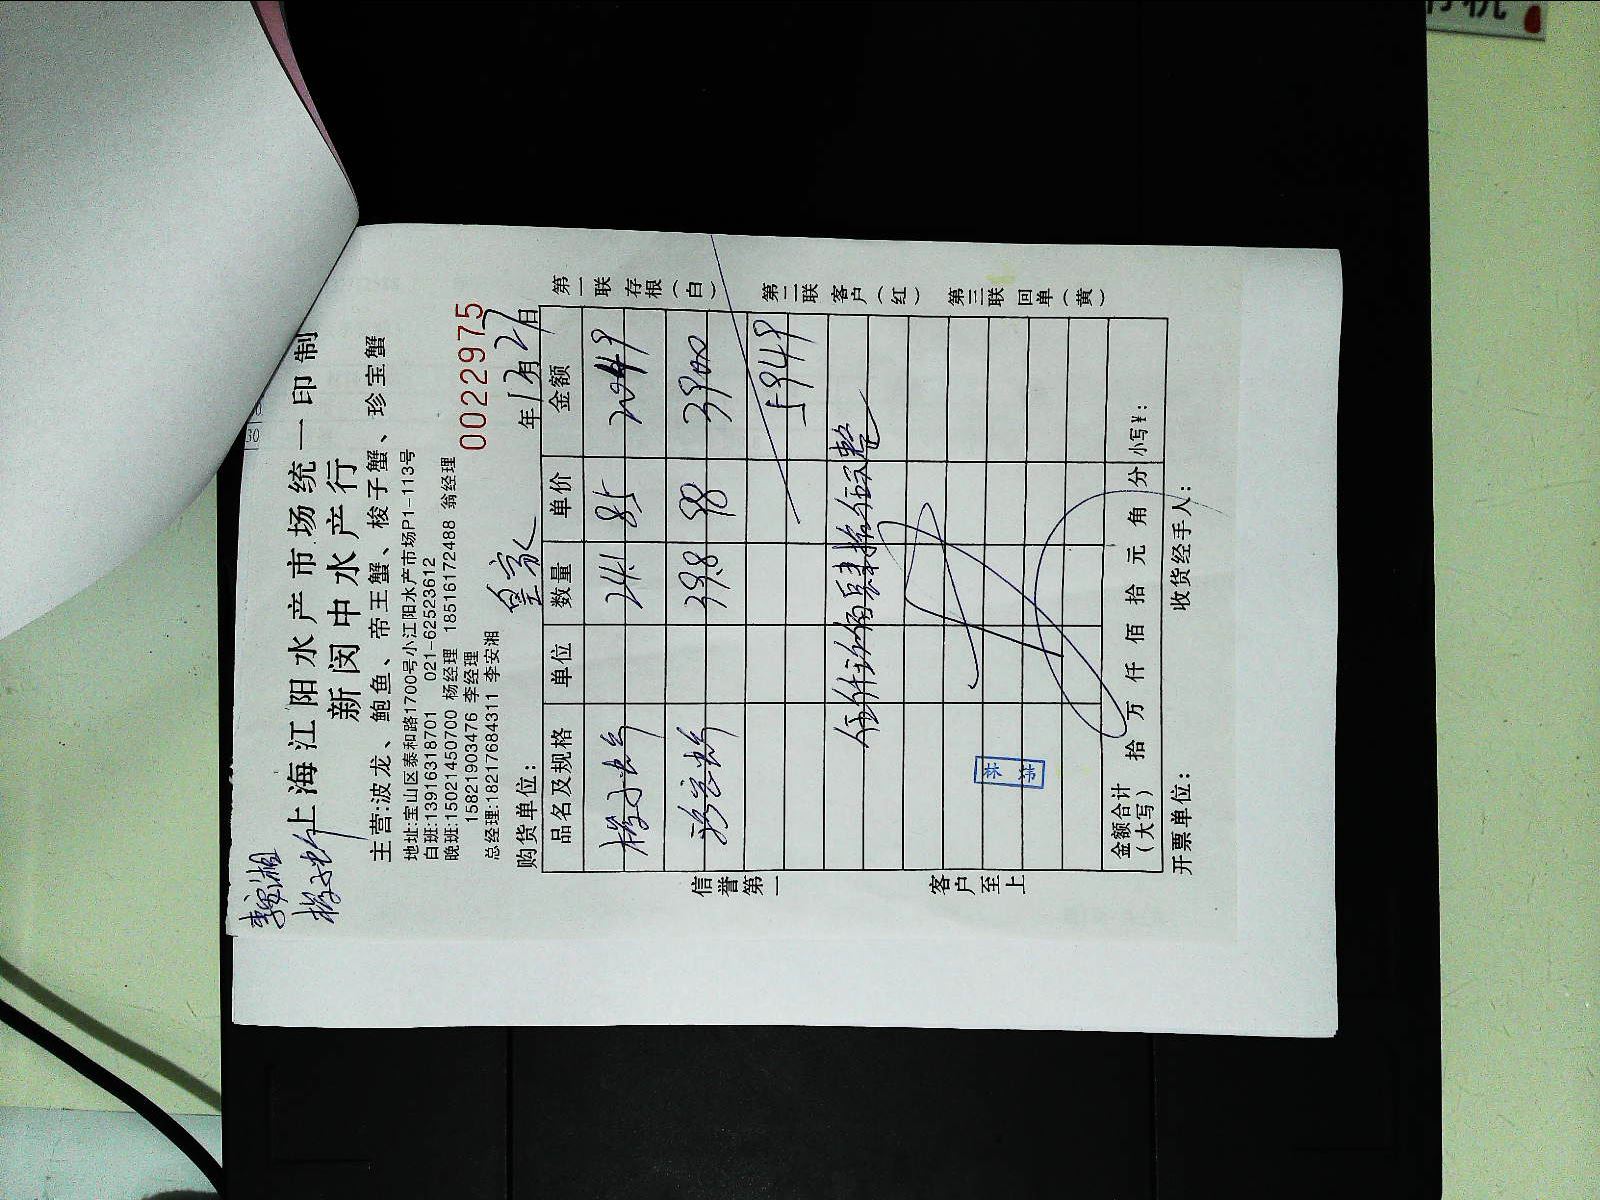 李安湘
梭子蟹
上海江阳水产市场统一印制
新闵中水产行
主营:波龙、鲍鱼、帝王蟹、梭子蟹、珍宝蟹
地址:宝山区泰和路1700号小江阳水产市场P1-113号
白班:13916318701 021-62523612
晚班:15021450700 杨经理 18516172488 翁经理
15821903476 李经理
总经理:18217684311 李安湘
0022975
购货单位: 皇家 年12月27日
品名及规格 单位 数量 单价 金额
梭子蟹 24.1 85 2049
珍宝蟹 39.8 98 3900
5949
伍仟玖佰肆拾玖元整
金额合计(大写) 拾 万 仟 佰 拾 元 角 分 小写¥:
开票单位: 收货经手人:
信誉第一
客户至上
第一联 存根(白)
第二联 客户(红)
第三联 回单(黄)